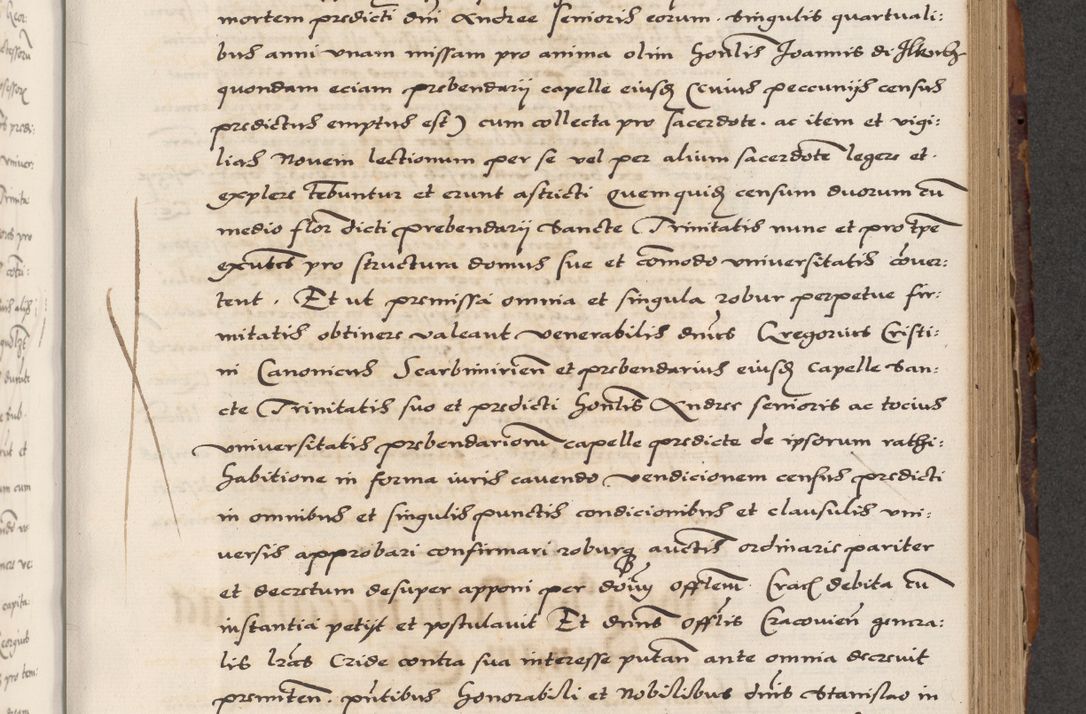 mortem predicti dni Andree senioris eorum. Singulis quartuali:
bus anni unam missam pro anima olim honlis Joannis de
quondam eciam prebendarij capelle eiusd (Cuius peccunijs census
predictus emptus est) cum collecta pro sacerdote. ac item et vigi:
lias Novem lectionum per se vel per alium sacerdote legere et.
explere tebuntur et erunt astricti Quemquid censum duorum cu
medio flor dicti prebendarij Sancte Trinitatis nunc et pro tpe
exntes pro structura domus sue et comodo universitatis cover:
tent. Et ut premissa omnia et singula robur perpetue fir:
mitatis obtinere valeant venerabilis dnus Gregorius Cristi:
ni Canonicus Scarbimirien et prebendarius eiusd Capelle San:
cte Trinitatis suo et predicti honlis Andree senioris ac tocius
universitatis prebendarioru capelle predicte de ipsorum rathi:
habitione in forma iuris cavendo vendicionem census predicti
in omnibus et singulis punctis condicionibus et clausulis uni:
versis approbari confirmari roburq auctis ordinarie pariter
et decretum desuper apponi per dom Offlem Crac debita cu
instantia petijt et postulavit Et dnus Offlis Cracovien genera:
lis lras Cride contra sua interesse putan ante omnia decrevit
premitten. pntibus honorabili et Nobilibus dnis Stanislao in